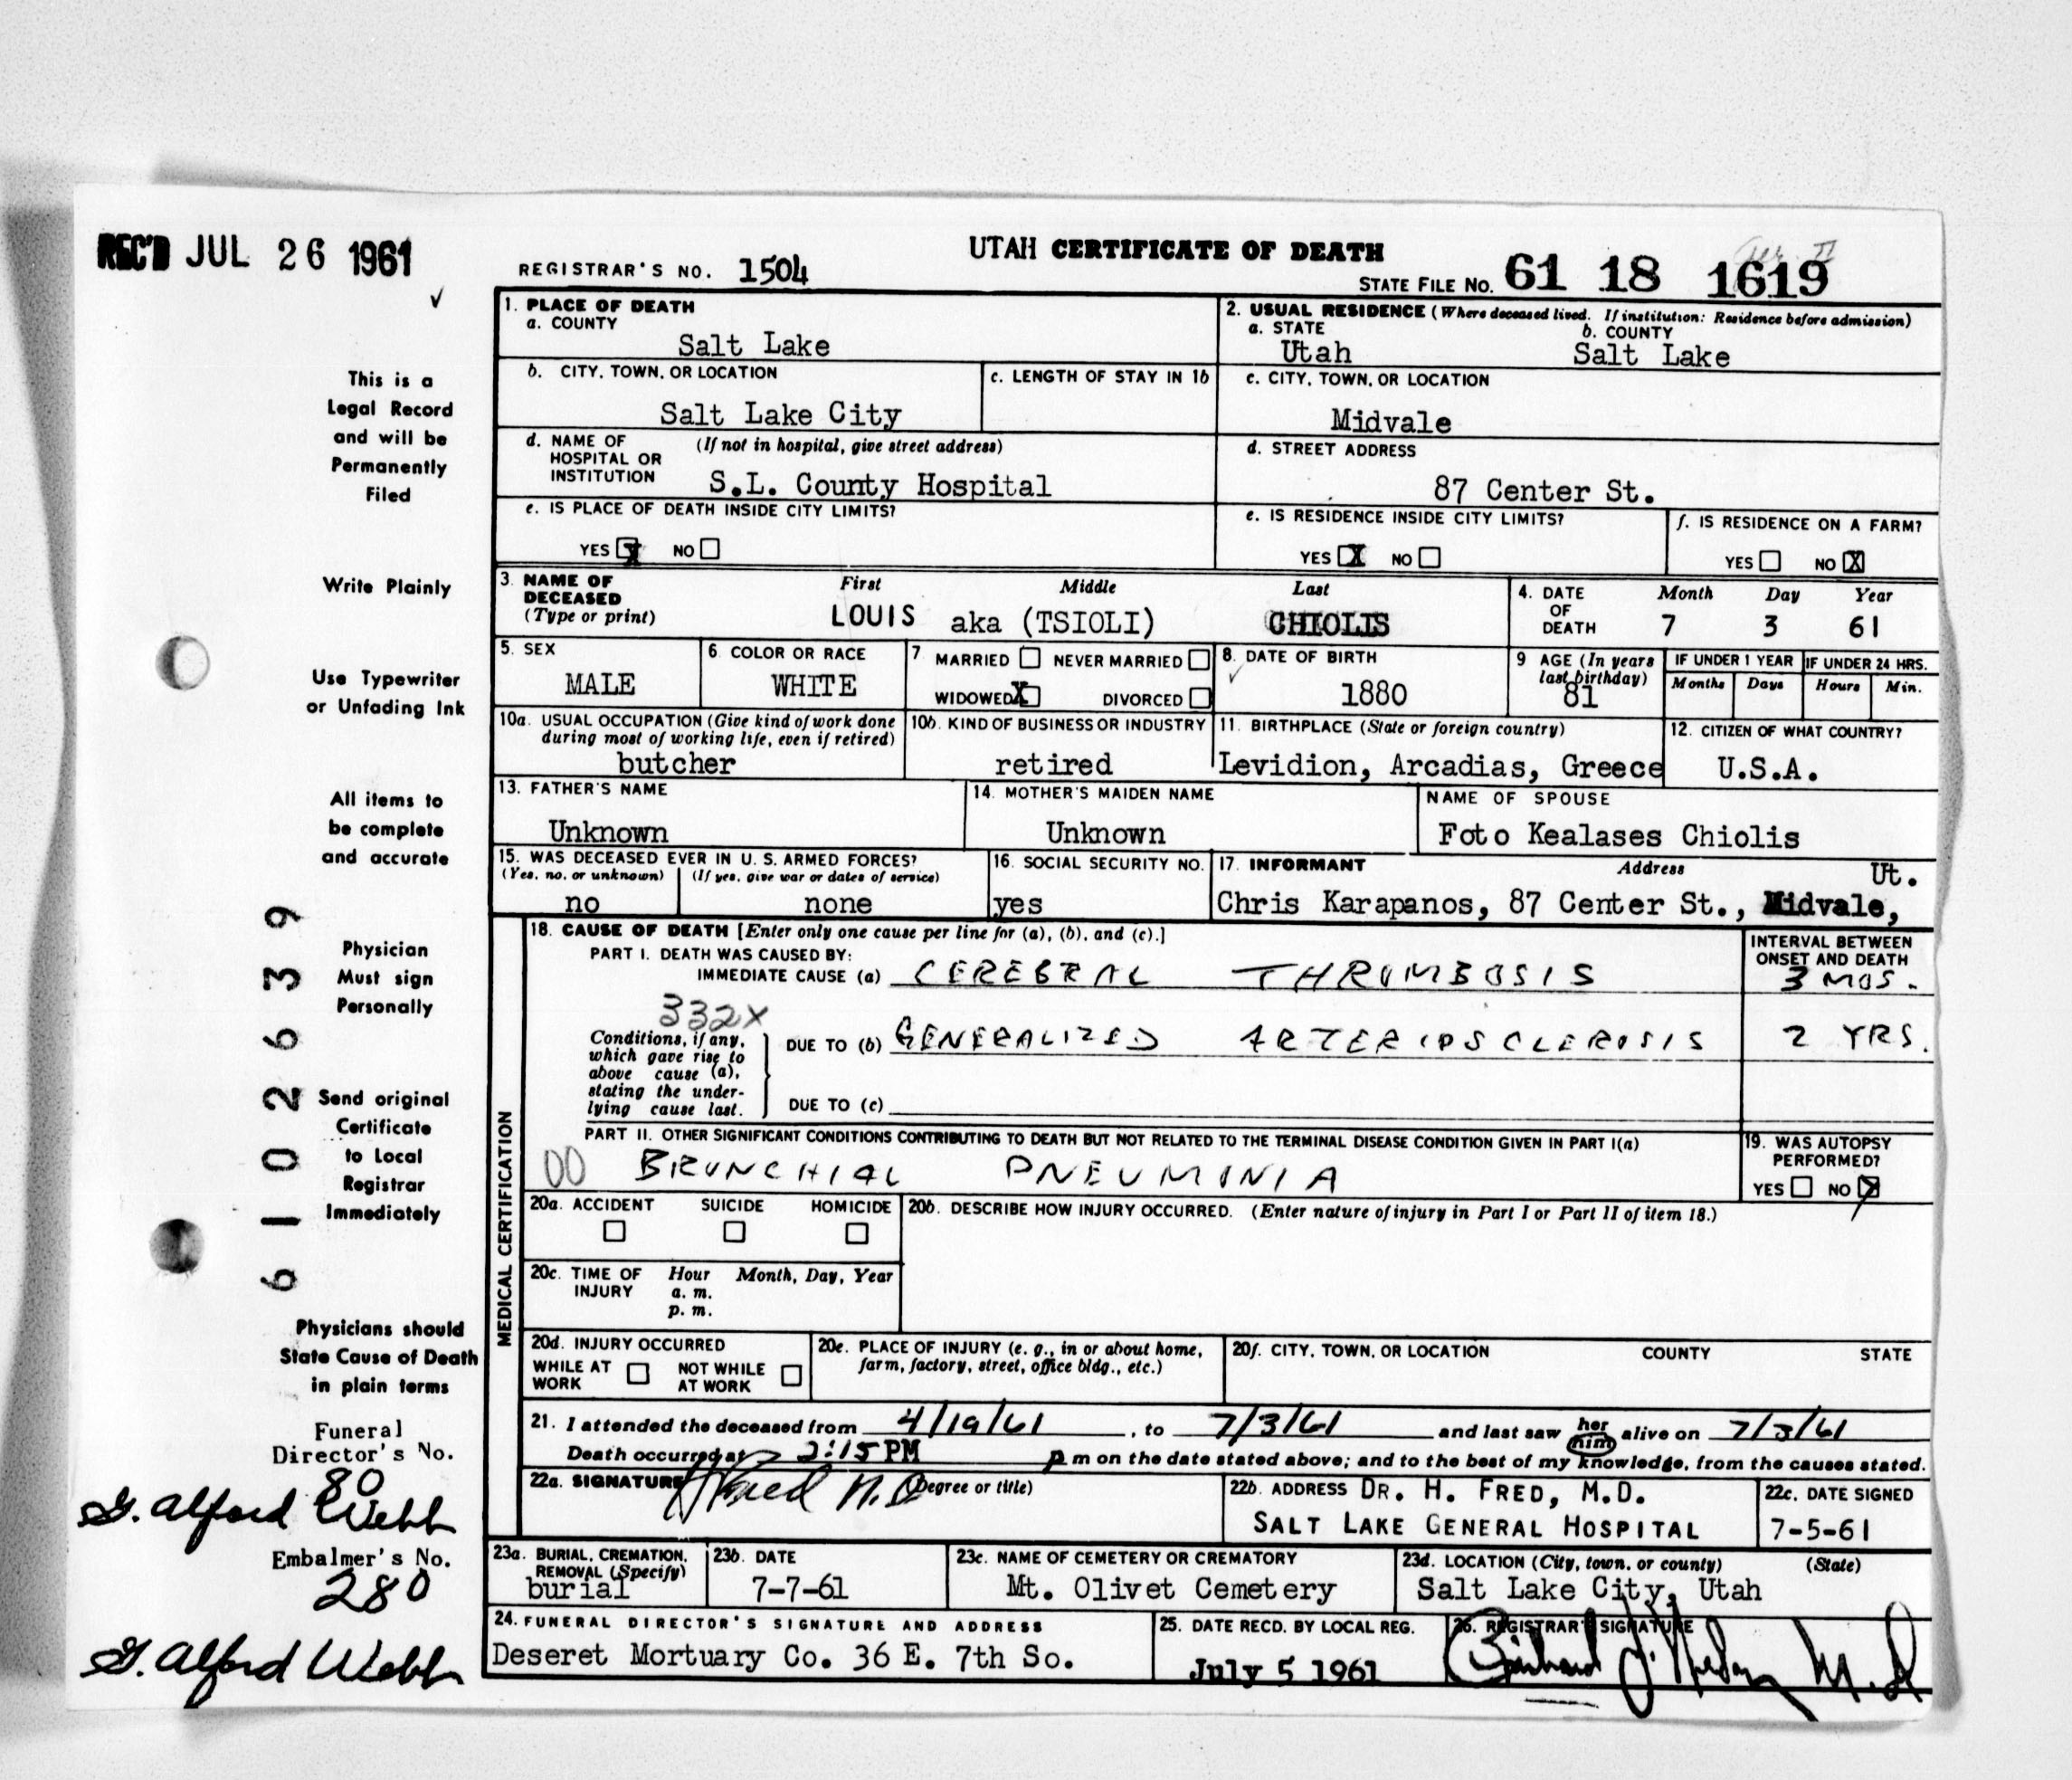 REC'D JUL 26 1961
UTAH CERTIFICATE OF DEATH
REGISTRAR'S NO. 1504
STATE FILE NO. 61 18 1619
✓
This is a
Legal Record
and will be
Permanently
Filed
Write Plainly
Use Typewriter
or Unfading Ink
All items to
be complete
and accurate
Physician
Must sign
Personally
Send original
Certificate
to Local
Registrar
Immediately
Physicians should
State Cause of Death
in plain terms
6102639
Funeral
Director's No.
80
G. Alford Webb
Embalmer's No.
280
G. Alford Webb
1. PLACE OF DEATH
a. COUNTY
Salt Lake
2. USUAL RESIDENCE (Where deceased lived. If institution: Residence before admission)
a. STATE b. COUNTY
Utah Salt Lake
b. CITY, TOWN, OR LOCATION
Salt Lake City
c. LENGTH OF STAY IN 1b
c. CITY, TOWN, OR LOCATION
Midvale
d. NAME OF (If not in hospital, give street address)
HOSPITAL OR
INSTITUTION S.L. County Hospital
d. STREET ADDRESS
87 Center St.
e. IS PLACE OF DEATH INSIDE CITY LIMITS?
YES X NO
e. IS RESIDENCE INSIDE CITY LIMITS?
YES X NO
f. IS RESIDENCE ON A FARM?
YES NO X
3. NAME OF First Middle Last
DECEASED
(Type or print) LOUIS aka (TSIOLI) CHIOLIS
4. DATE Month Day Year
OF
DEATH 7 3 61
5. SEX
MALE
6. COLOR OR RACE
WHITE
7 MARRIED NEVER MARRIED
WIDOWED X DIVORCED
8. DATE OF BIRTH
✓ 1880
9 AGE (In years
last birthday)
81
IF UNDER 1 YEAR
Months Days
IF UNDER 24 HRS.
Hours Min.
10a. USUAL OCCUPATION (Give kind of work done
during most of working life, even if retired)
butcher
10b. KIND OF BUSINESS OR INDUSTRY
retired
11. BIRTHPLACE (State or foreign country)
Levidion, Arcadias, Greece
12. CITIZEN OF WHAT COUNTRY?
U.S.A.
13. FATHER'S NAME
Unknown
14. MOTHER'S MAIDEN NAME
Unknown
NAME OF SPOUSE
Foto Kealases Chiolis
15. WAS DECEASED EVER IN U. S. ARMED FORCES?
(Yes, no, or unknown) (If yes, give war or dates of service)
no none
16. SOCIAL SECURITY NO.
yes
17. INFORMANT Address Ut.
Chris Karapanos, 87 Center St., Midvale,
MEDICAL CERTIFICATION
18. CAUSE OF DEATH [Enter only one cause per line for (a), (b), and (c).]
PART I. DEATH WAS CAUSED BY:
IMMEDIATE CAUSE (a) CEREBRAL THROMBOSIS
INTERVAL BETWEEN
ONSET AND DEATH
3 MOS.
332X
Conditions, if any,
which gave rise to
above cause (a),
stating the under-
lying cause last.
DUE TO (b) GENERALIZED ARTERIOSCLEROSIS
2 YRS.
DUE TO (c)
PART II. OTHER SIGNIFICANT CONDITIONS CONTRIBUTING TO DEATH BUT NOT RELATED TO THE TERMINAL DISEASE CONDITION GIVEN IN PART I(a)
00 BRONCHIAL PNEUMONIA
19. WAS AUTOPSY
PERFORMED?
YES NO X
20a. ACCIDENT SUICIDE HOMICIDE
20b. DESCRIBE HOW INJURY OCCURRED. (Enter nature of injury in Part I or Part II of item 18.)
20c. TIME OF Hour Month, Day, Year
INJURY a. m.
p. m.
20d. INJURY OCCURRED
WHILE AT NOT WHILE
WORK AT WORK
20e. PLACE OF INJURY (e. g., in or about home,
farm, factory, street, office bldg., etc.)
20f. CITY, TOWN, OR LOCATION COUNTY STATE
21. I attended the deceased from 4/19/61, to 7/3/61 and last saw her him alive on 7/3/61
Death occurred at 2:15 PM p m on the date stated above; and to the best of my knowledge, from the causes stated.
22a. SIGNATURE H Fred M.D. (Degree or title)
22b. ADDRESS DR. H. FRED, M.D.
SALT LAKE GENERAL HOSPITAL
22c. DATE SIGNED
7-5-61
23a. BURIAL, CREMATION,
REMOVAL (Specify)
burial
23b. DATE
7-7-61
23c. NAME OF CEMETERY OR CREMATORY
Mt. Olivet Cemetery
23d. LOCATION (City, town, or county) (State)
Salt Lake City, Utah
24. FUNERAL DIRECTOR'S SIGNATURE AND ADDRESS
Deseret Mortuary Co. 36 E. 7th So.
25. DATE RECD. BY LOCAL REG.
July 5 1961
26. REGISTRAR'S SIGNATURE